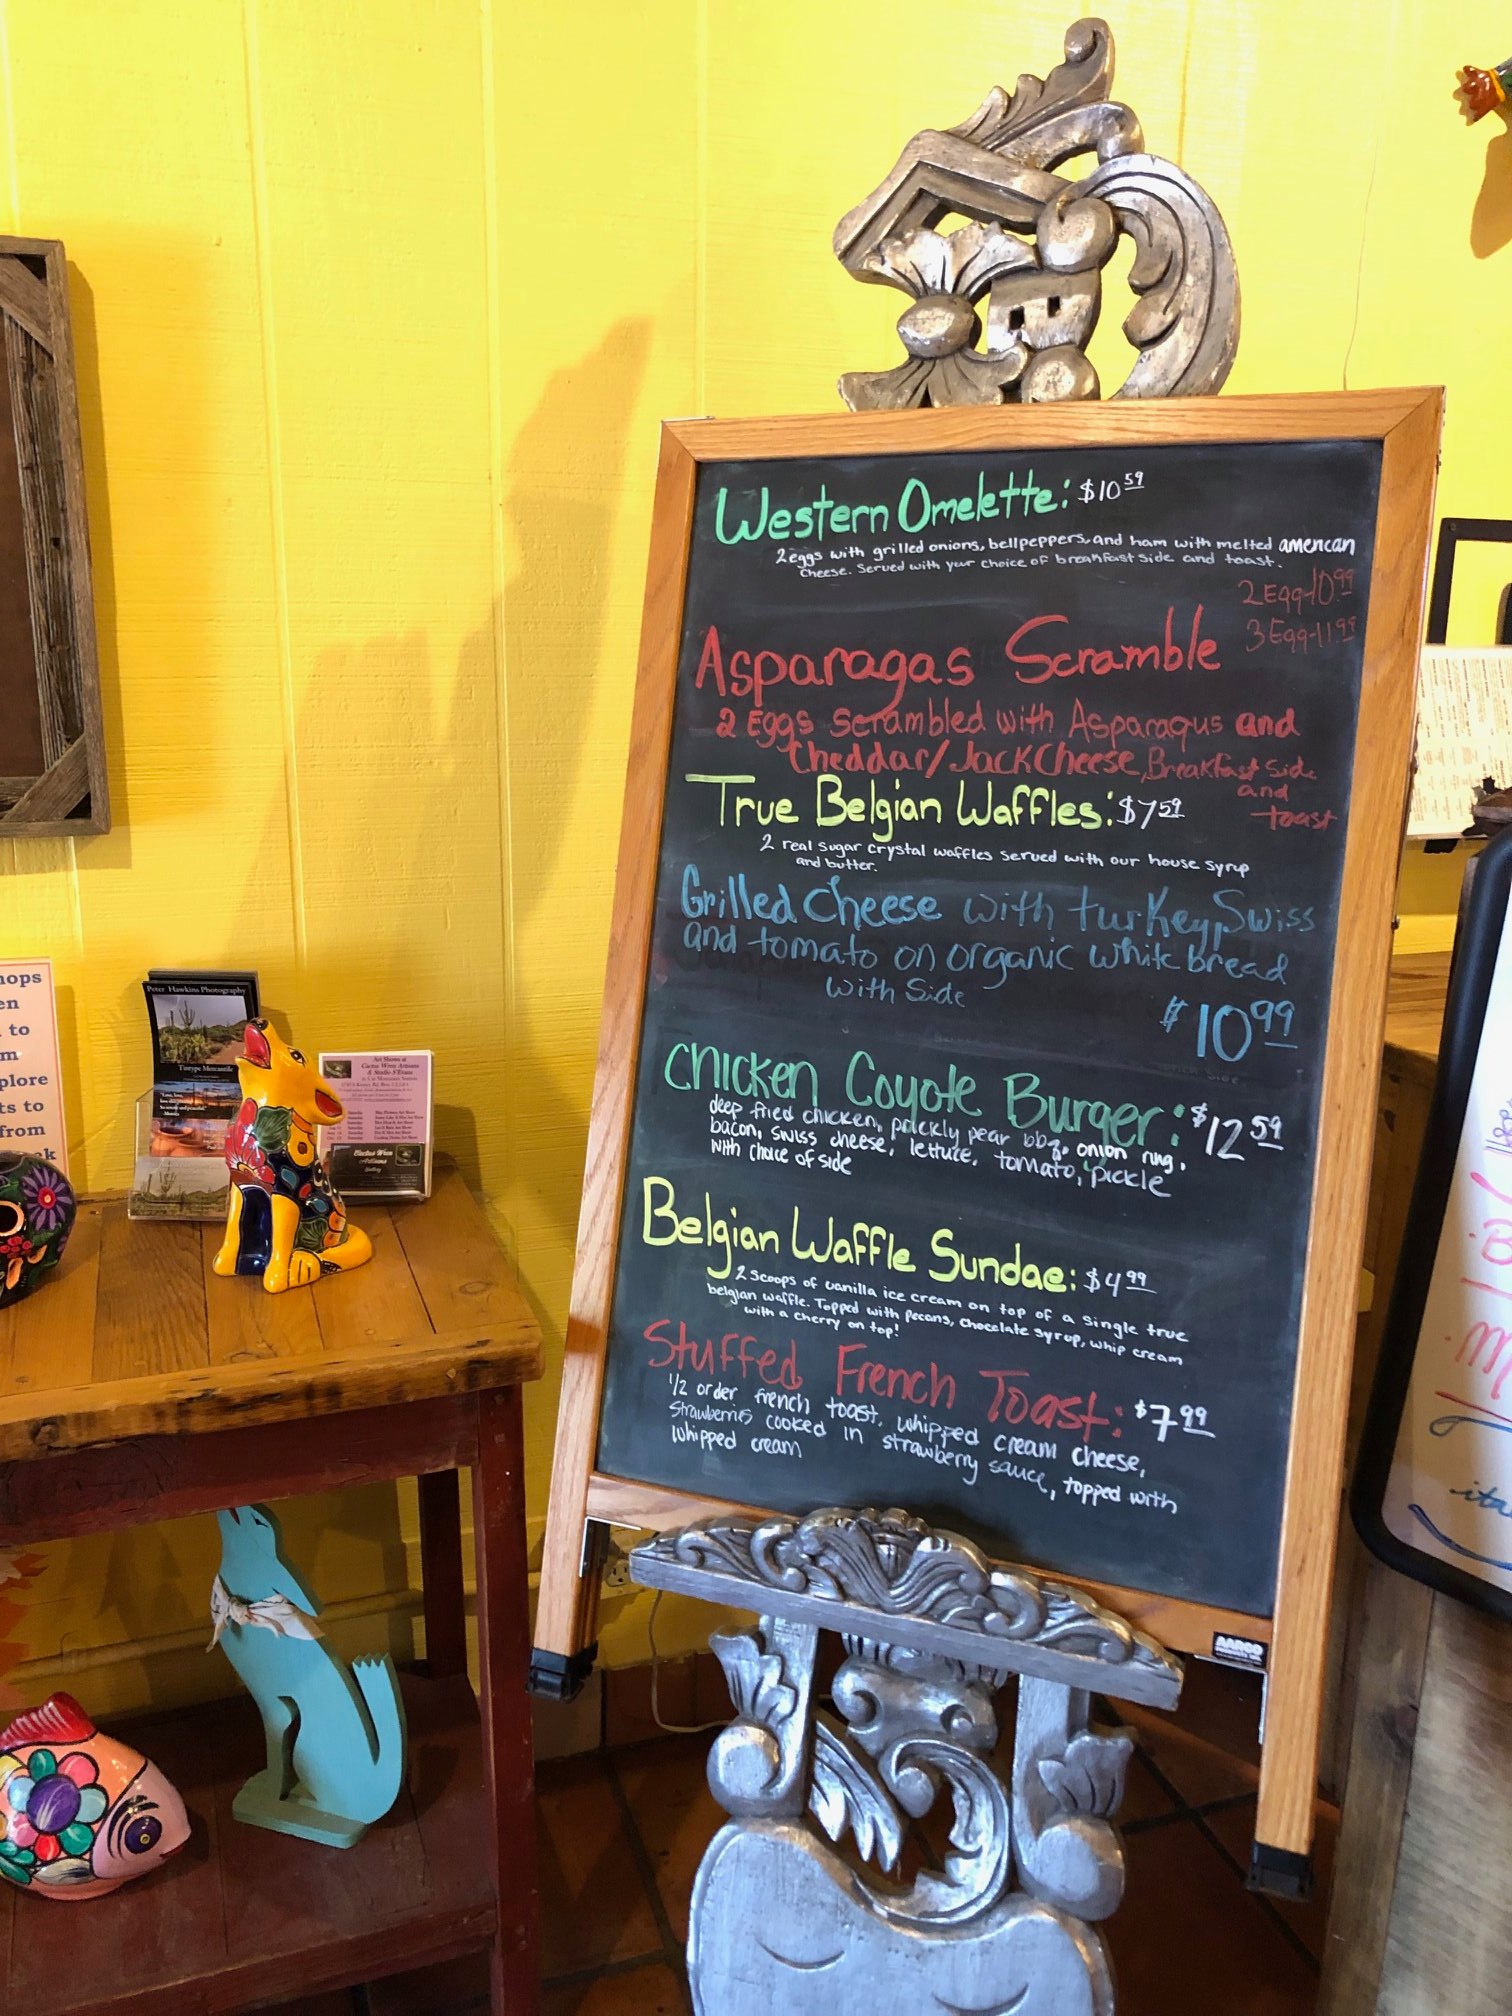 Western Omelette: $10 59
2 eggs with grilled onions, bellpeppers, and ham with melted american
cheese. Served with your choice of breakfast side and toast.
2 Egg-10.99
3 Egg-11.99
Asparagas Scramble
2 Eggs scrambled with Asparagus and
Cheddar/Jack Cheese, Breakfast side
and
toast
True Belgian Waffles: $7 59
2 real sugar crystal waffles served with our house syrup
and butter.
Grilled Cheese with turkey, Swiss
and tomato on organic white bread
with Side
$10 99
Chicken Coyote Burger: $12 59
deep fried chicken, prickly pear bbq, onion ring,
bacon, swiss cheese, lettuce, tomato, pickle
with choice of side
Belgian Waffle Sundae: $4 99
2 scoops of vanilla ice cream on top of a single true
belgian waffle. Topped with pecans, chocolate syrup, whip cream
with a cherry on top!
Stuffed French Toast: $7 99
1/2 order french toast, whipped cream cheese,
strawberries cooked in strawberry sauce, topped with
whipped cream
AARCO
Peter Hawkins Photography
Tintype Mercantile
Art Shows at
Cactus Wren Artisans
Cactus Wren
Artisans
Gallery
hops
en
to
m
plore
ts to
from
ok
ita